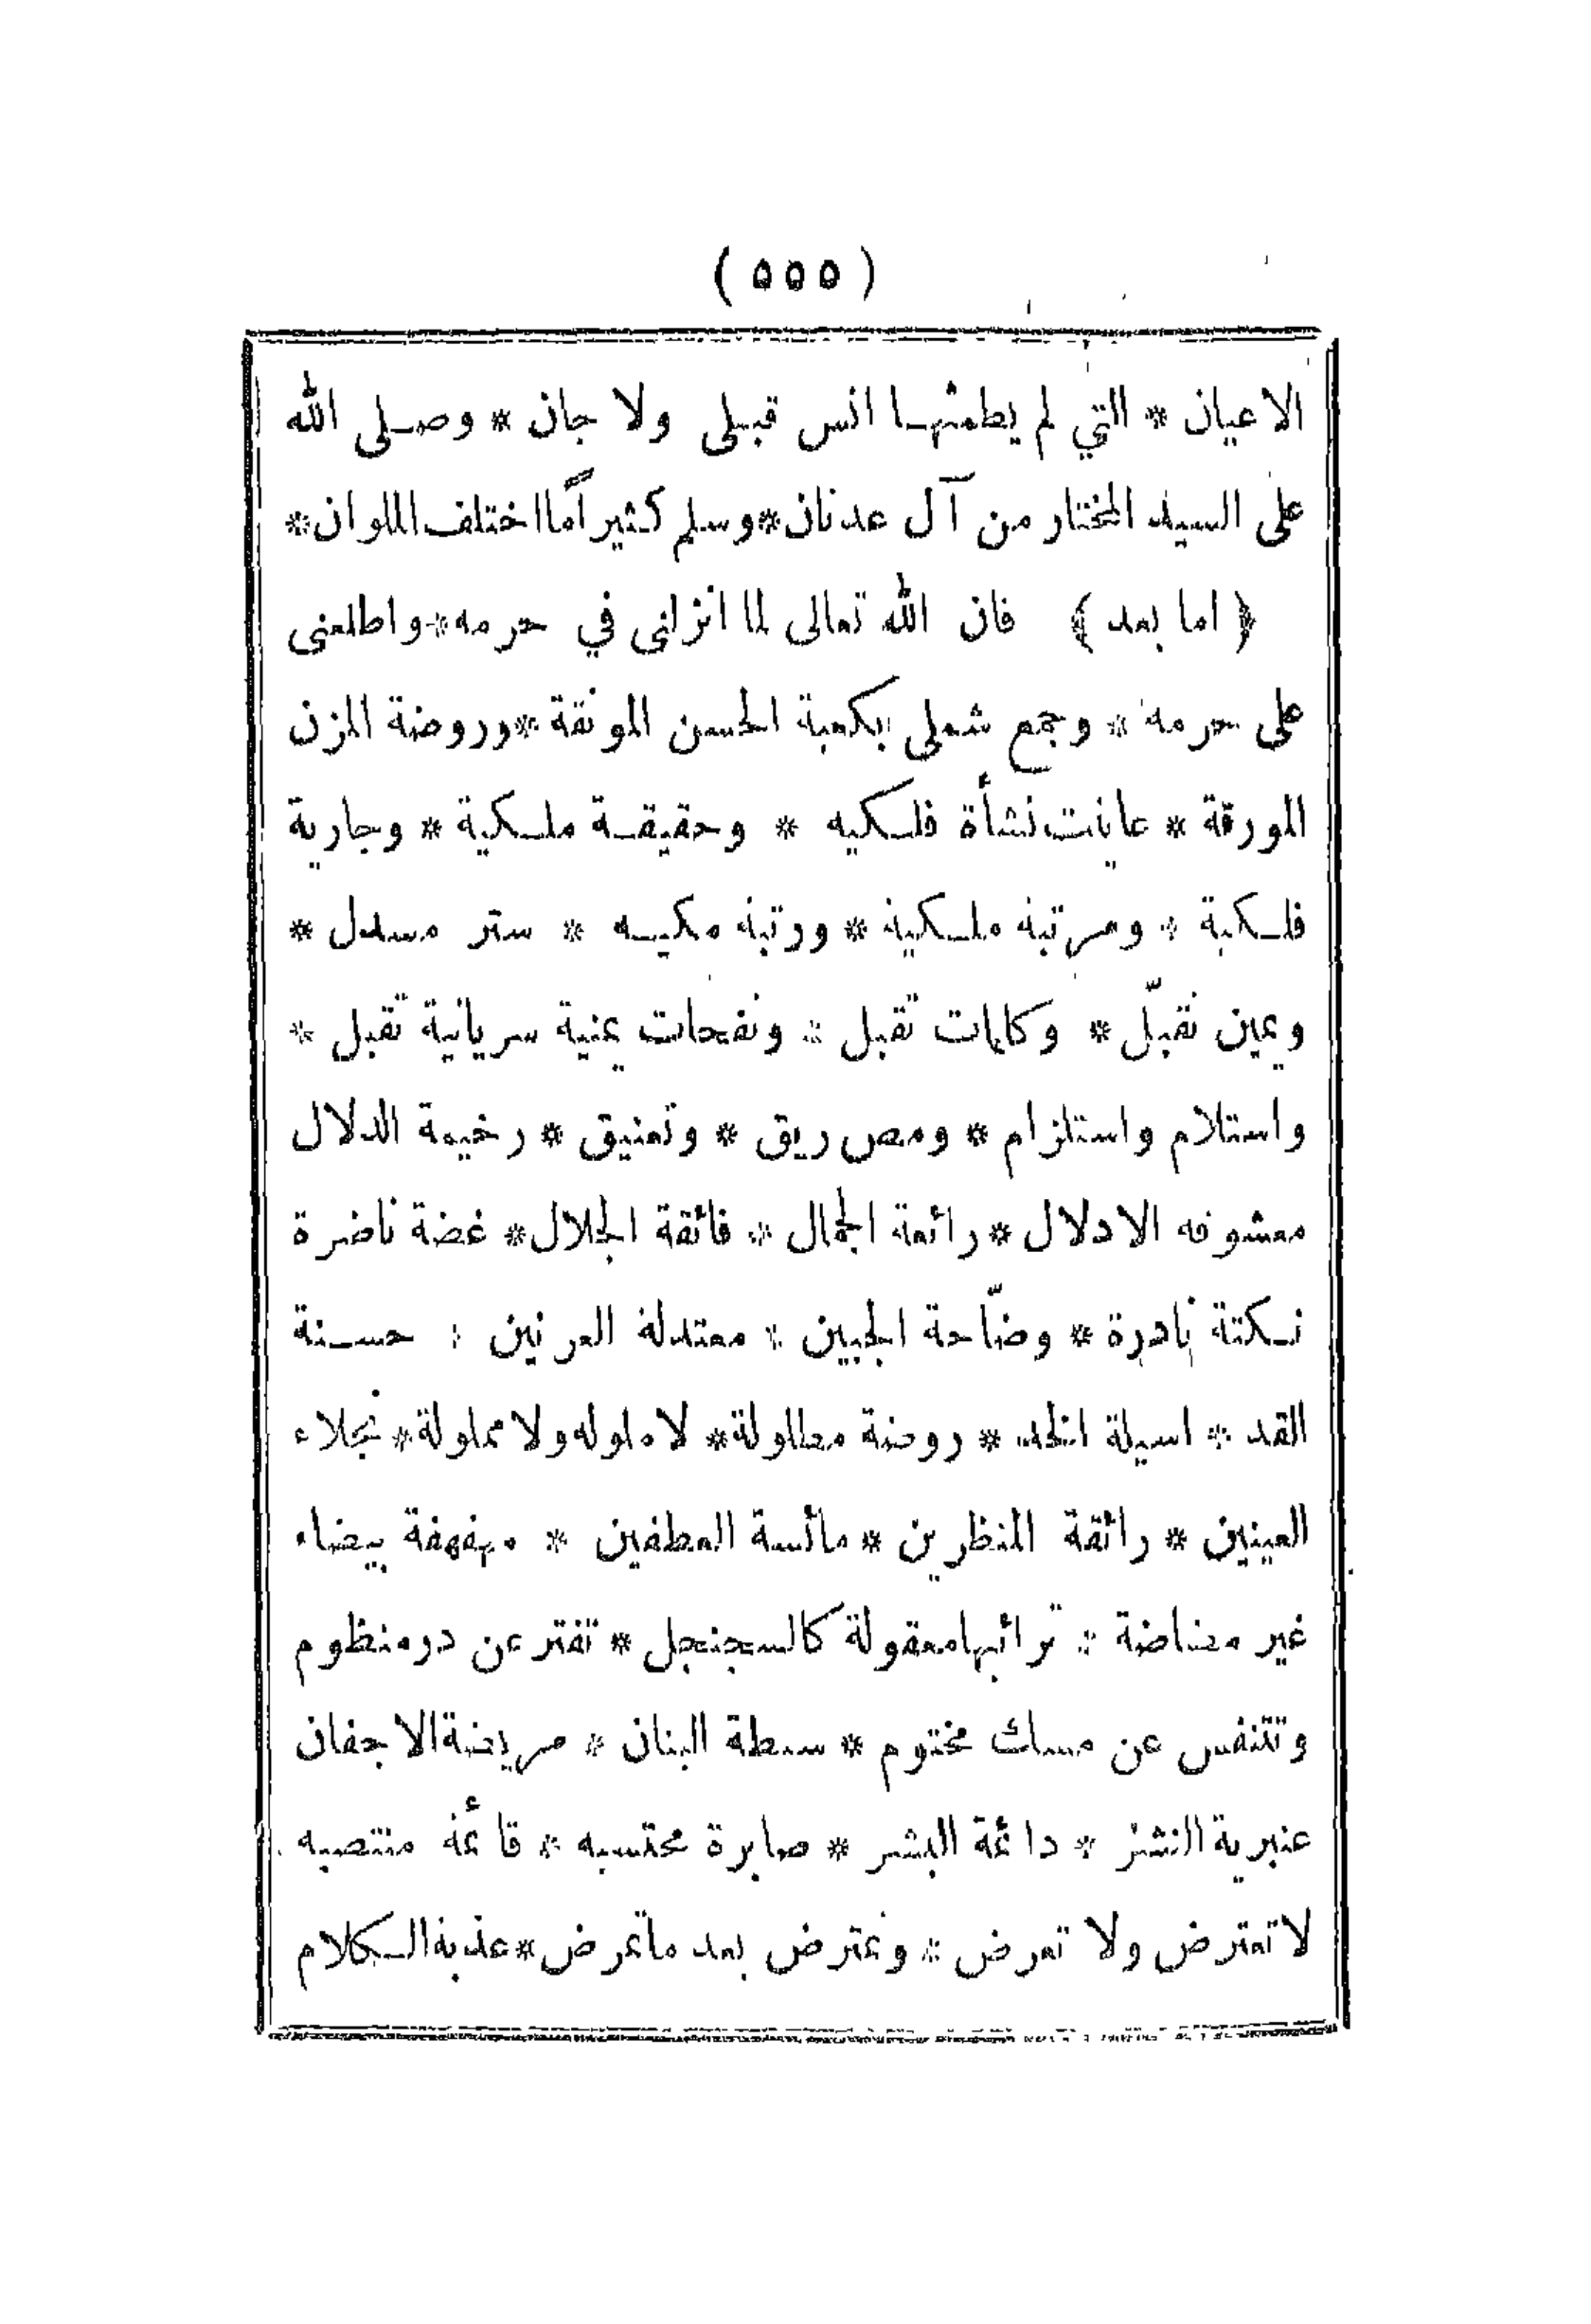 ( ٥٥٥ )
الاعيان * التي لم يطمثها انس قبلى ولا جان * وصلى الله
على السيد المختار من آل عدنان * وسلم كثيراً ما اختلف الملوان *
﴿ اما بعد ﴾ فان الله تعالى لما انزلنى في حرمه * واطلعنى
على حرمه * وجمع شملى بكعبة الحسن المونقة * وروضة المزن
المورقة * عاينت نشأة فلكيه * وحقيقة ملكية * وجارية
فلكية * ومرتبة ملكية * ورتبة مكيه * ستر مسدل *
ويمين تقبّل * وكلمات تقبل * ونفحات يمنية سريانية تقبل *
واستلام واستلزام * ومص ريق * وتعنيق * رخيمة الدلال
معشوقه الادلال * رائعة الجمال * فائقة الجلال * غضة ناضرة
نكتة نادرة * وضّاحة الجبين * معتدلة العرنين * حسنة
القد * اسيلة الخد * روضة مطلولة * لا ملوله ولا مملولة * نجلاء
العينين * رائقة المنظرين * مائسة العطفين * مهفهفة بيضاء
غير مفاضة * ترائبها مصقولة كالسجنجل * تفتر عن در منظوم
وتتنفس عن مسك مختوم * سبطة البنان * مريضة الاجفان
عنبرية النشر * دائمة البشر * صابرة محتسبه * قائمة منتصبه
لا تعترض ولا تعرض * وتمترض بعد ما تمرض * عذبة الكلام